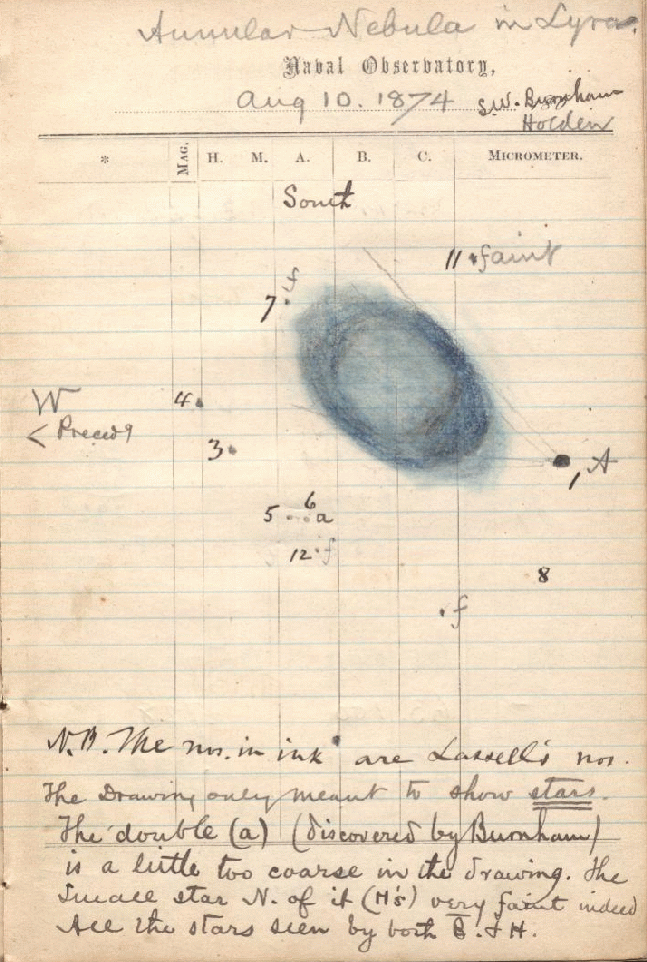 Annular Nebula in Lyra.
Naval Observatory,
Aug 10. 1874 S.W. Burnham
Holden
* MAG. H. M. A. B. C. MICROMETER.
South
11 faint
7 f
W 4
< Preced g
3
A
1
5 6 a
12 f
8
f
N.B. The nos. in ink are Lassell's nos.
The Drawing only meant to show stars.
The double (a) (discovered by Burnham)
is a little too coarse in the drawing. The
small star N. of it (H's) very faint indeed
All the stars seen by both B. & H.